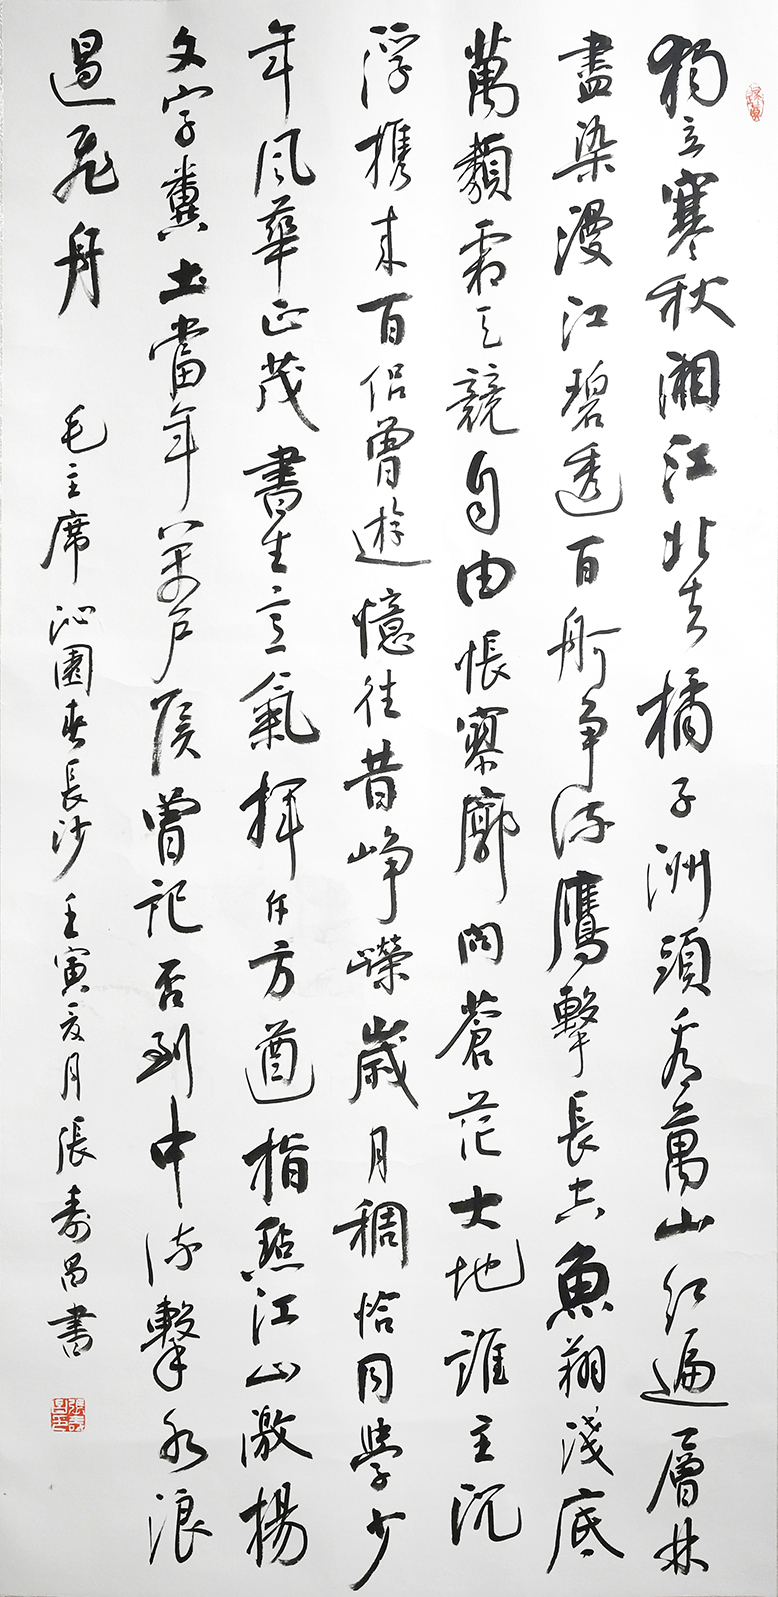 獨立寒秋湘江北去橘子洲頭看萬山紅遍層林
盡染漫江碧透百舸争流鷹擊長空魚翔淺底
萬類霜天競自由悵寥廓問蒼茫大地誰主沉
浮携來百侣曾遊憶往昔崢嶸歲月稠恰同學少
年風華正茂書生意氣揮斥方遒指點江山激揚
文字糞土當年萬户侯曾記否到中流擊水浪
遏飛舟
毛主席沁園春長沙壬寅夏月張壽昌書